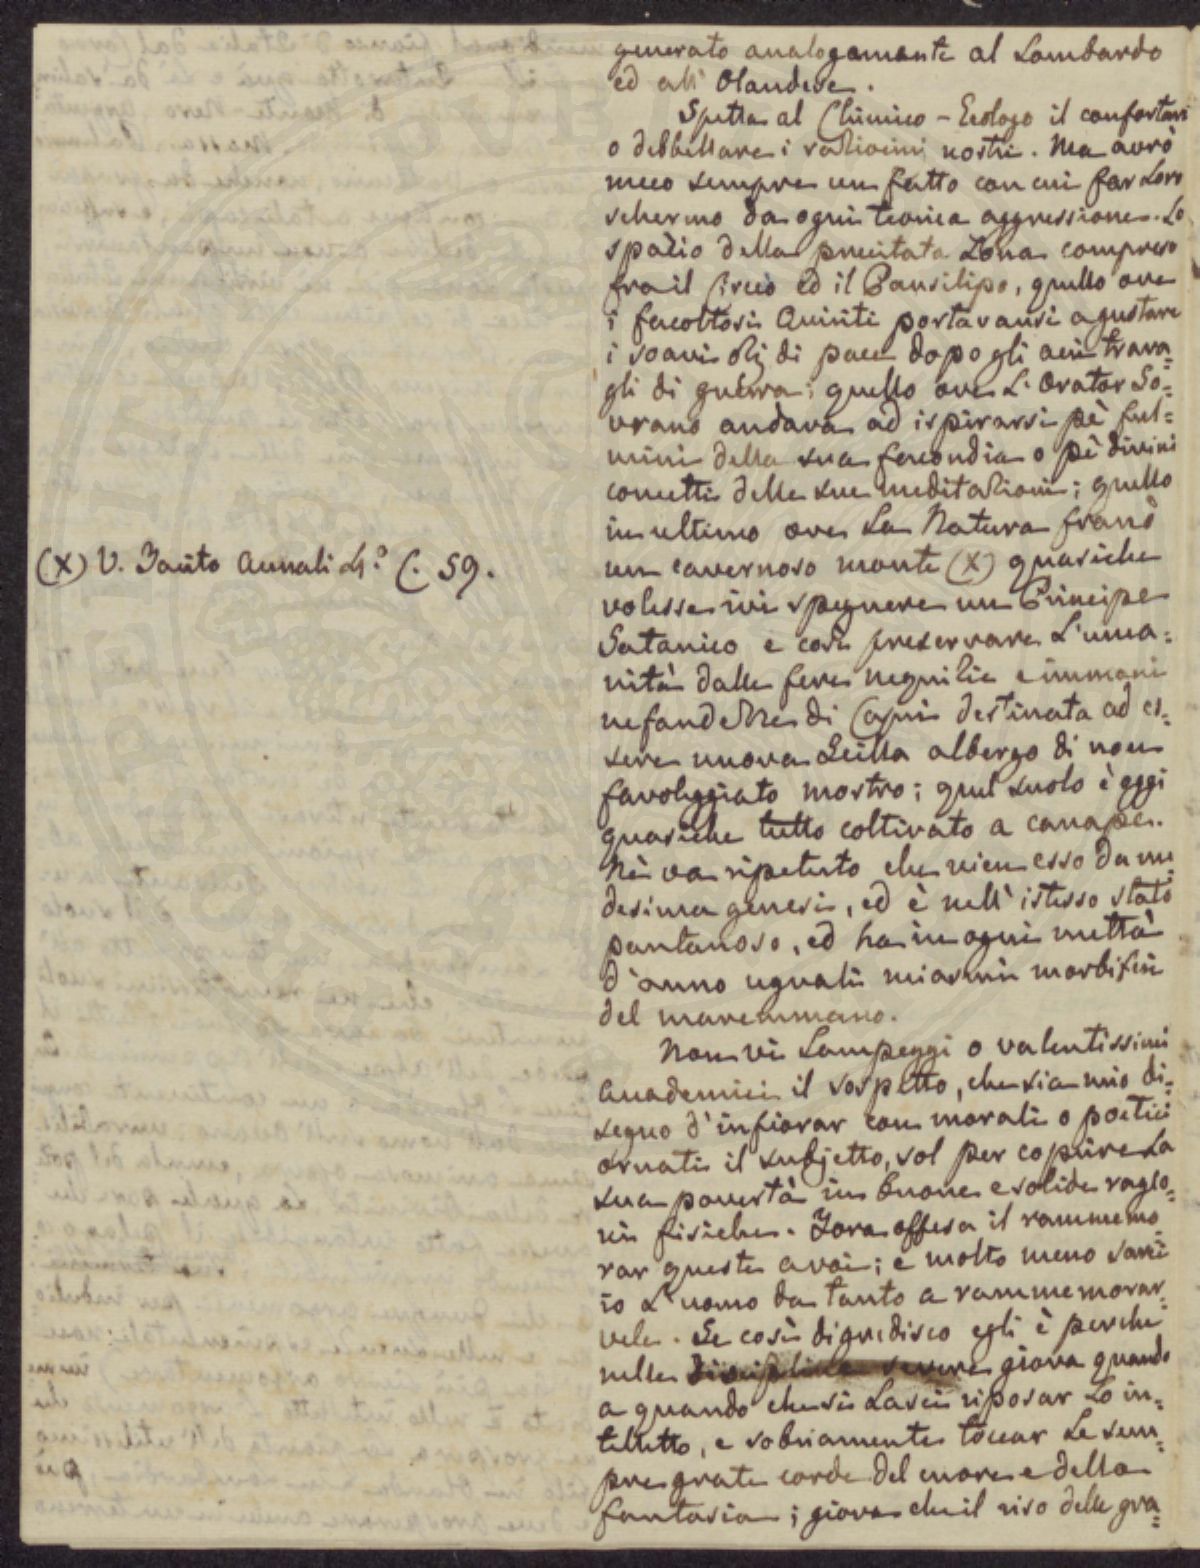 generato analogamente al Lombardo
ed all' Olandese.
Spetta al Chimico-Geologo il confortare
o debbellare i raziocinii nostri. Ma avrò
meco sempre un fatto con cui far loro
schermo da ogni teorica aggressione. Lo
spazio della precitata Zona compreso
fra il Circeo ed il Pausilipo, quello ove
i facoltosi Quiriti portavansi a gustare
i soavi ozj di pace dopo gli acri trava=
gli di guerra; quello ove L'Orator So=
vrano andava ad ispirarsi pè ful=
mini della sua facondia o pè divini
concetti delle sue meditazioni; quello
in ultimo ove La Natura franò
un cavernoso monte (X) quasiche
volesse ivi spegnere un Principe
Satanico e così preservare L'uma=
nità dalle fere nequizie e immani
nefandezze di Capri destinata ad es=
sere nuova Scilla albergo di non
favoleggiato mostro; quel suolo è oggi
quasiche tutto coltivato a canape.
Nè va ripetuto che vien esso da me
desima genesi, ed è nell' istesso stato
pantanoso, ed ha in ogni mettà
d'anno uguali miasmi morbifici
del maremmano.
Non vi Lampeggi o valentissimi
Accademici il sospetto, che sia mio di=
segno d'infiorar con morali o poetici
ornati il subjetto, sol per coprire La
sua povertà in buone e solide ragio=
ni fisiche. Fora offesa il rammemo
rar queste a voi; e molto meno sarei
io L'uomo da tanto a rammemorar=
vele. Se così digredisco egli è perche
nelle giova quando
a quando che si Lasci riposar Lo in=
telletto, e sobriamente toccar Le sem=
pre grate corde del cuore e della
fantasia; giova che il riso delle gra=
(X) V. Tacito Annali L. 4.° C. 59.